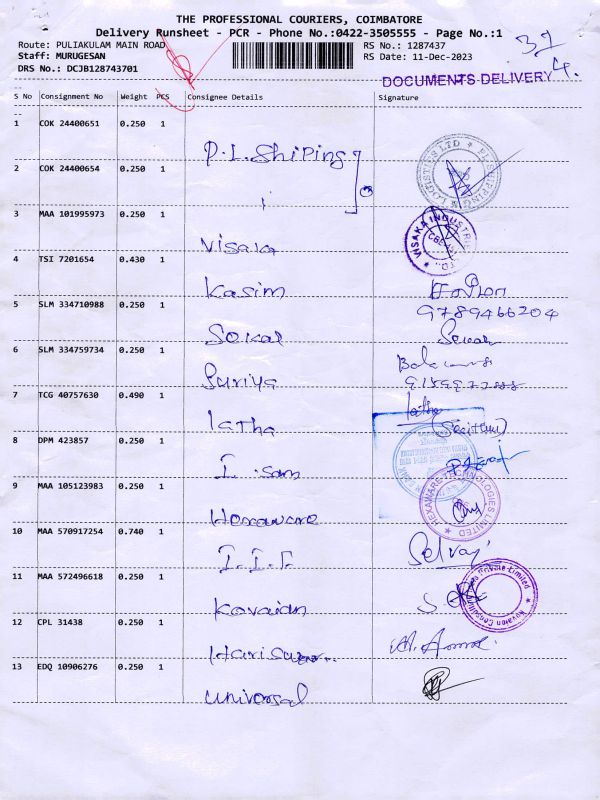 THE PROFESSIONAL COURIERS, COIMBATORE
Delivery Runsheet - PCR - Phone No.:0422-3505555 - Page No.:1
Route: PULIAKULAM MAIN ROAD RS No.: 1287437
Staff: MURUGESAN RS Date: 11-Dec-2023
DRS No.: DCJB128743701
DOCUMENTS DELIVERY
S No Consignment No Weight PCS Consignee Details Signature
1 COK 24400651 0.250 1 P.L. Shiping
2 COK 24400654 0.250 1
3 MAA 101995973 0.250 1 Visaka
VISAKA INDUSTRIES LTD.
4 TSI 7201654 0.430 1 Kasim
9789466204
5 SLM 334710988 0.250 1 Sekar
6 SLM 334759734 0.250 1 Suriya
7 TCG 40757630 0.490 1 latha latha
8 DPM 423857 0.250 1
9 MAA 105123983 0.250 1 Hexaware
HEXAWARE TECHNOLOGIES LIMITED
10 MAA 570917254 0.740 1 Selvaj
11 MAA 572496618 0.250 1 Kovaian
Private Limited
12 CPL 31438 0.250 1
13 EDQ 10906276 0.250 1 universal